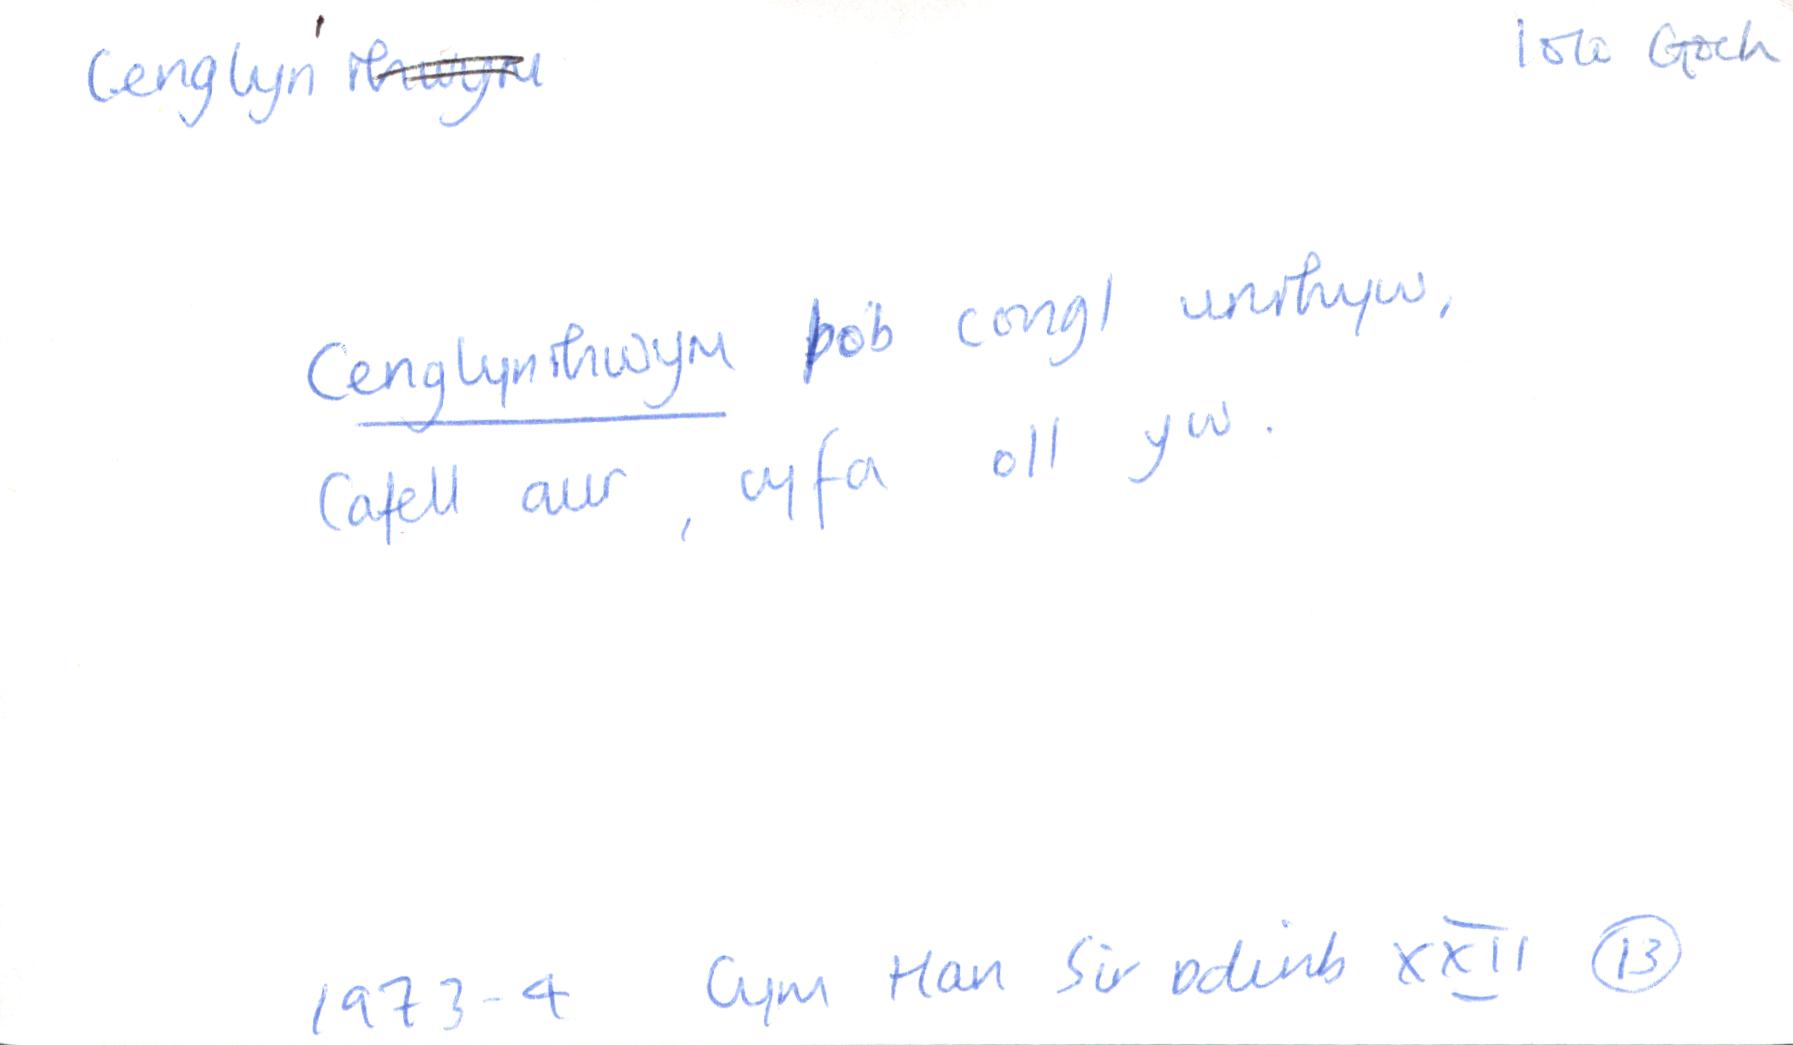 Cenglyn' rhwym Iolo Goch
Cenglynrhwym pob congl unrhyw,
Cafell aur, cyfa oll yw.
1973-4 Cym Han Sir Ddinb XXII 13